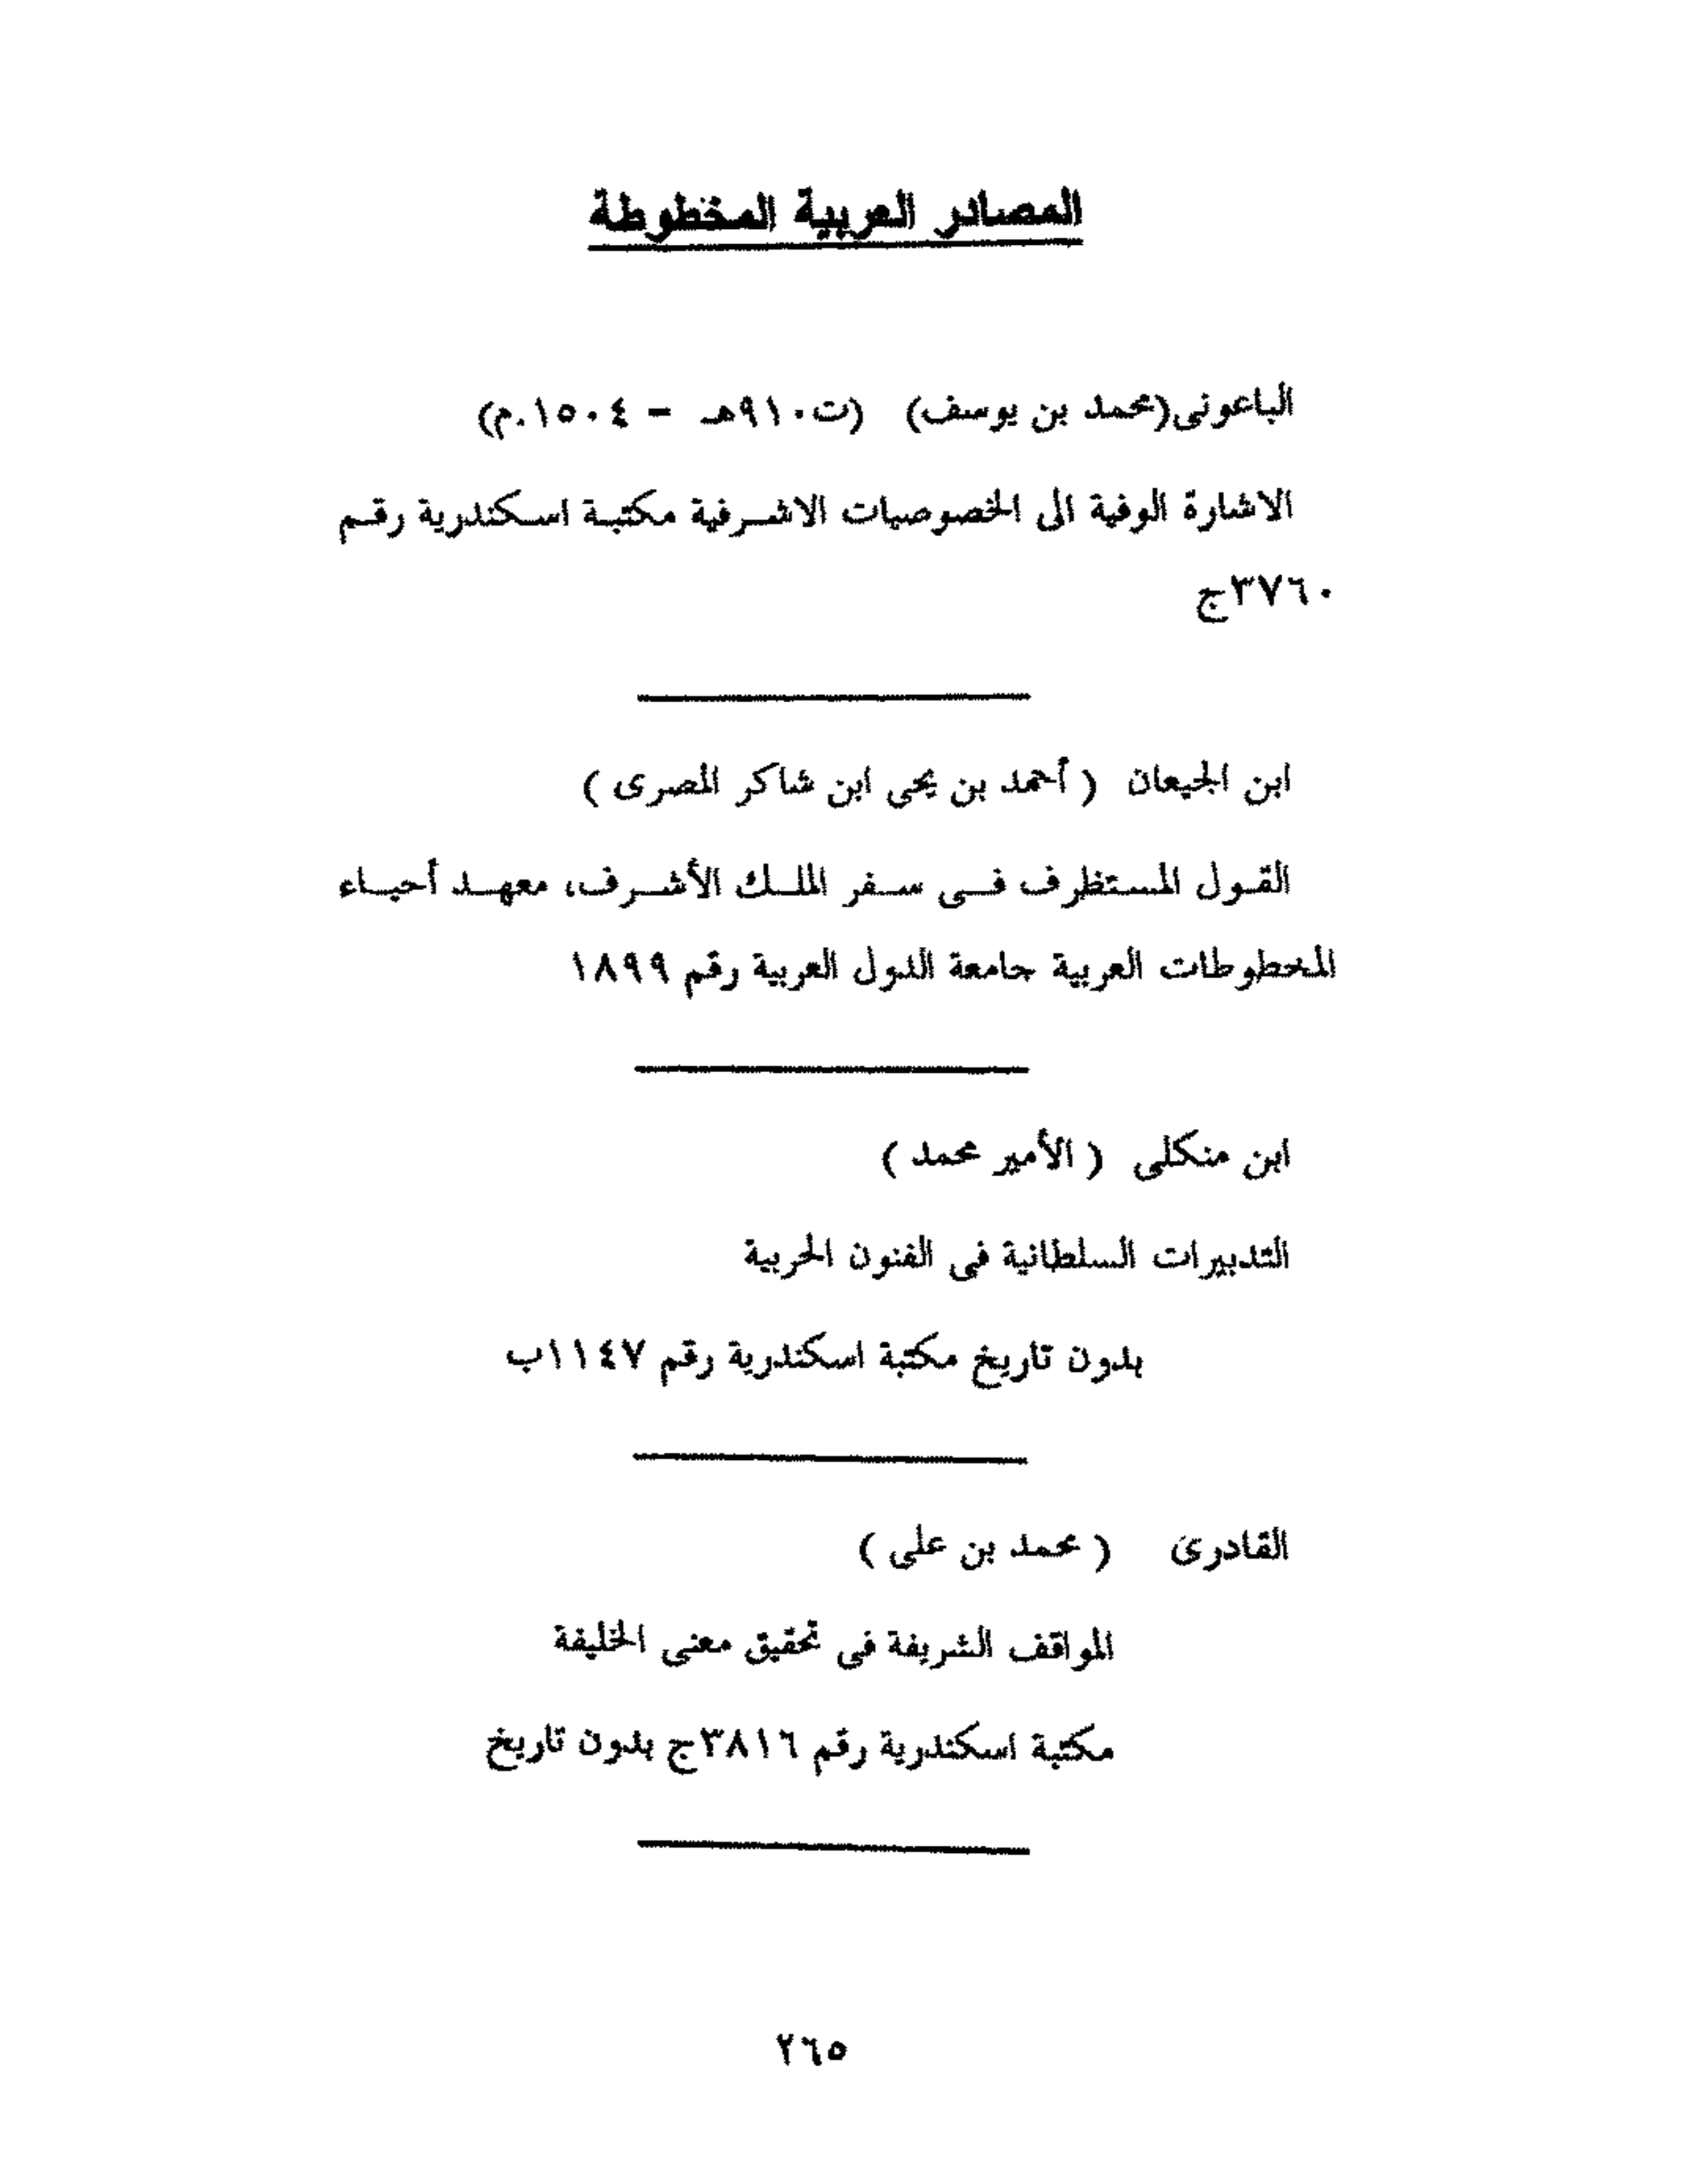 المصادر العربية المخطوطة
الباعونى(محمد بن يوسف) (ت٩١٠هـ - ١٥٠٤.م)
الاشارة الوفية الى الخصوصيات الاشرفية مكتبة اسكندرية رقم
٣٧٦٠ج
ابن الجيعان ( أحمد بن يحى ابن شاكر المصرى )
القول المستظرف فى سفر الملك الأشرف، معهد أحياء
المخطوطات العربية جامعة الدول العربية رقم ١٨٩٩
ابن منكلى ( الأمير محمد )
التدبيرات السلطانية فى الفنون الحربية
بدون تاريخ مكتبة اسكندرية رقم ١١٤٧ب
القادرى ( محمد بن على )
المواقف الشريفة فى تحقيق معنى الخليفة
مكتبة اسكندرية رقم ٣٨١٦ج بدون تاريخ
٢٦٥